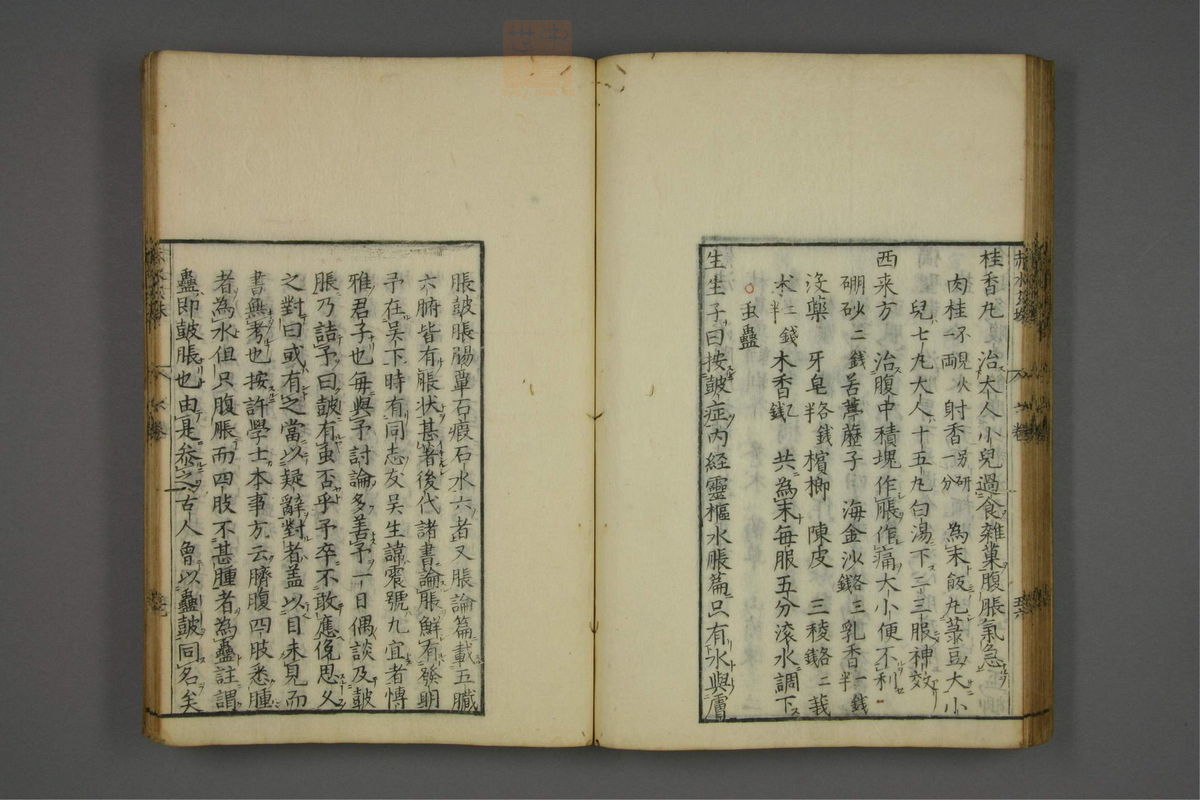 桂香丸 治大人小兒過食雜菓腹脹氣急
肉桂 不見火 一兩 射香 另研 一分 為末飯丸菉豆大小
兒七丸大人十五丸白湯下二三服神效
西来方 治腹中積塊作脹作痛大小便不利
硼砂 二錢 苦葶藶子 海金沙 各三錢 乳香 一錢半
沒藥 牙皂 各錢半 檳榔 陳皮 三稜 各二錢 莪
朮 二錢半 木香 錢 共為末每服五分滚水調下
虫蠱
生生子曰按皷症内經靈樞水脹篇只有水與膚
脹皷脹腸覃石瘕石水六者又脹論篇載五臓
六腑皆有脹状甚著後代諸書論脹鮮有發明
予在吴下時有同志友吴生諱震號九宜者博
雅君子也毎與予討論多善予一日偶談及皷
脹乃詰予曰皷有虫否乎予卒不敢應俛思久
之對曰或有之當以疑辭對者盖以目未見而
書無考也按許學士本事方云臍腹四肢悉腫
者為水但只腹脹而四肢不甚腫者為蠱註謂
蠱即皷脹也由是叅之古人曾以蠱皷同名矣
赤水玄珠
六卷